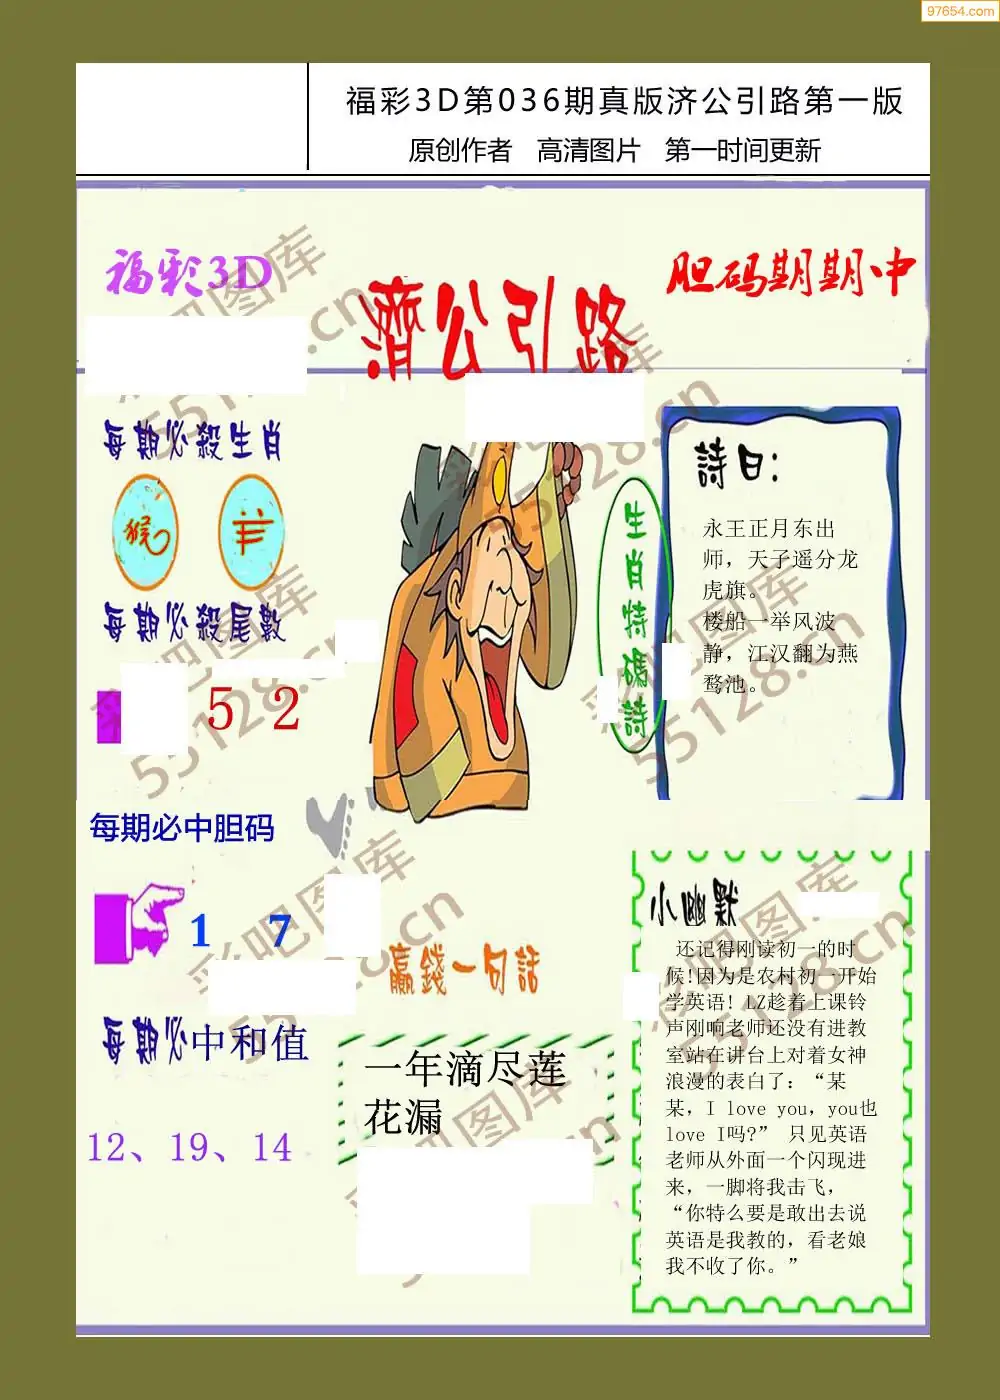 97654.com
福彩3D第036期真版济公引路第一版
原创作者 高清图片 第一时间更新
福彩3D
胆码期期中
濟公引路
每期必殺生肖
猴 羊
每期必殺尾數
5 2
每期必中胆码
1 7
每期必中和值
12、19、14
生肖特碼詩
詩曰:
永王正月东出
师，天子遥分龙
虎旗。
楼船一举风波
静，江汉翻为燕
鹜池。
赢錢一句話
一年滴尽莲
花漏
小幽默
还记得刚读初一的时
候!因为是农村初一开始
学英语! LZ趁着上课铃
声刚响老师还没有进教
室站在讲台上对着女神
浪漫的表白了：“某
某，I love you，you也
love I吗?” 只见英语
老师从外面一个闪现进
来，一脚将我击飞，
“你特么要是敢出去说
英语是我教的，看老娘
我不收了你。”
彩吧图库
55128.cn
彩吧图库
55128.cn
彩吧图库
55128.cn
彩吧图库
55128.cn
彩吧图库
55128.cn
彩吧图库
55128.cn
彩吧图库
55128.cn